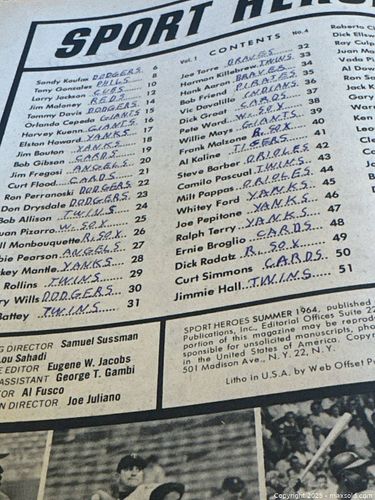 SPORT HER
Vol. 1 CONTENTS No. 4
Sandy Koufax DODGERS 6
Tony Gonzales PHILS 8
Larry Jackson CUBS 10
Jim Maloney REDS 12
Tommy Davis DODGERS 14
Orlando Cepeda GIANTS 15
Harvey Kuenn GIANTS 16
Elston Howard YANKS 17
Jim Bouton YANKS 18
Bob Gibson CARDS 19
Jim Fregosi ANGELS 20
Curt Flood CARDS 21
Ron Perranoski DODGERS 22
Don Drysdale DODGERS 23
Bob Allison TWINS 24
uan Pizarro W. SOX 25
ll Monbouquette R. SOX 26
bie Pearson ANGELS 27
ckey Mantle YANKS 28
Rollins TWINS 29
ry Wills DODGERS 30
Battey TWINS 31
Joe Torre BRAVES 32
Harmon Killebrew TWINS 33
Hank Aaron BRAVES 34
Bob Friend PIRATES 35
Vic Davalillo INDIANS 36
Dick Groat CARDS 37
Pete Ward W. SOX 38
Willie Mays GIANTS 39
Frank Malzone R. SOX 40
Al Kaline TIGERS 41
Steve Barber ORIOLES 42
Camilo Pascual TWINS 43
Milt Pappas ORIOLES 44
Whitey Ford YANKS 45
Joe Pepitone YANKS 46
Ralph Terry YANKS 47
Ernie Broglio CARDS 48
Dick Radatz R. SOX 49
Curt Simmons CARDS 50
Jimmie Hall TWINS 51
Roberto Cl
Dick Ellsw
Ray Culp
Juan Ma
Vada P
Al Dow
Ron Sa
Jack K
Gary
Warr
Ken
Leo
Ch
G DIRECTOR Samuel Sussman
Lou Sahadi
E EDITOR Eugene W. Jacobs
ASSISTANT George T. Gambi
TOR Al Fusco
N DIRECTOR Joe Juliano
SPORT HEROES SUMMER 1964, published
Publications, Inc., Editorial Offices Suite 22
portion of this magazine may be reprodu
sponsible for unsolicited manuscripts, pho
in the United States of America. Copyr
501 Madison Ave., N. Y. 22, N. Y.
Litho in U.S.A. by Web Offset P
Copyright 2025 - maxsold.com